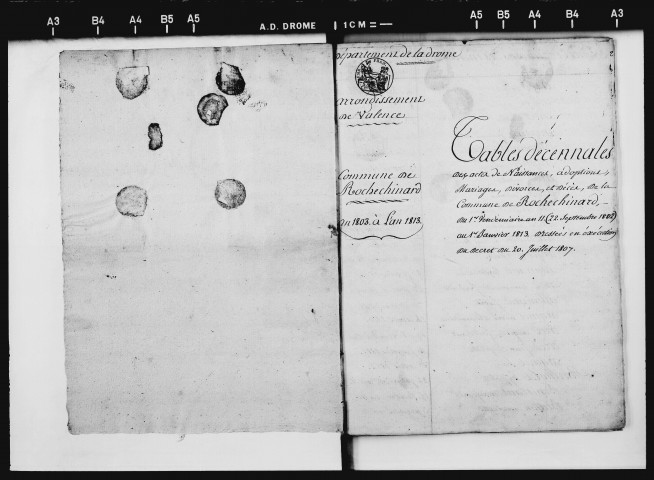 A3 B4 A4 B5 A5 A.D. DROME 1 CM = A5 B5 A4 B4 A3
Département de la drome
arrondissement
de Valence
Commune de
Rochechinard
an 1803. à L'an 1813.
Tables décennales
des actes de Naissances, adoptions,
Mariages, divorces, et décès, de la
Commune de Rochechinard,
du 1er Vendemiaire an 11 (22. Septembre 1802)
au 1er Janvier 1813. dressées en éxécution
du decret du 20. Juillet 1807.